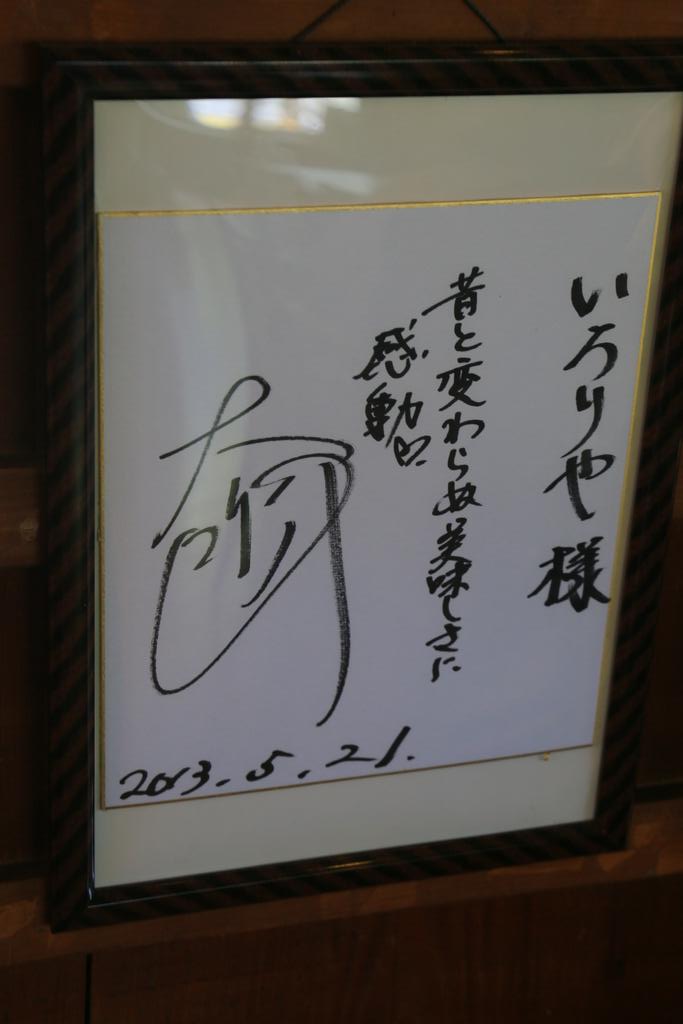 いろりや様
昔と変わらぬ美味しさに
感動!!
2013.5.21.